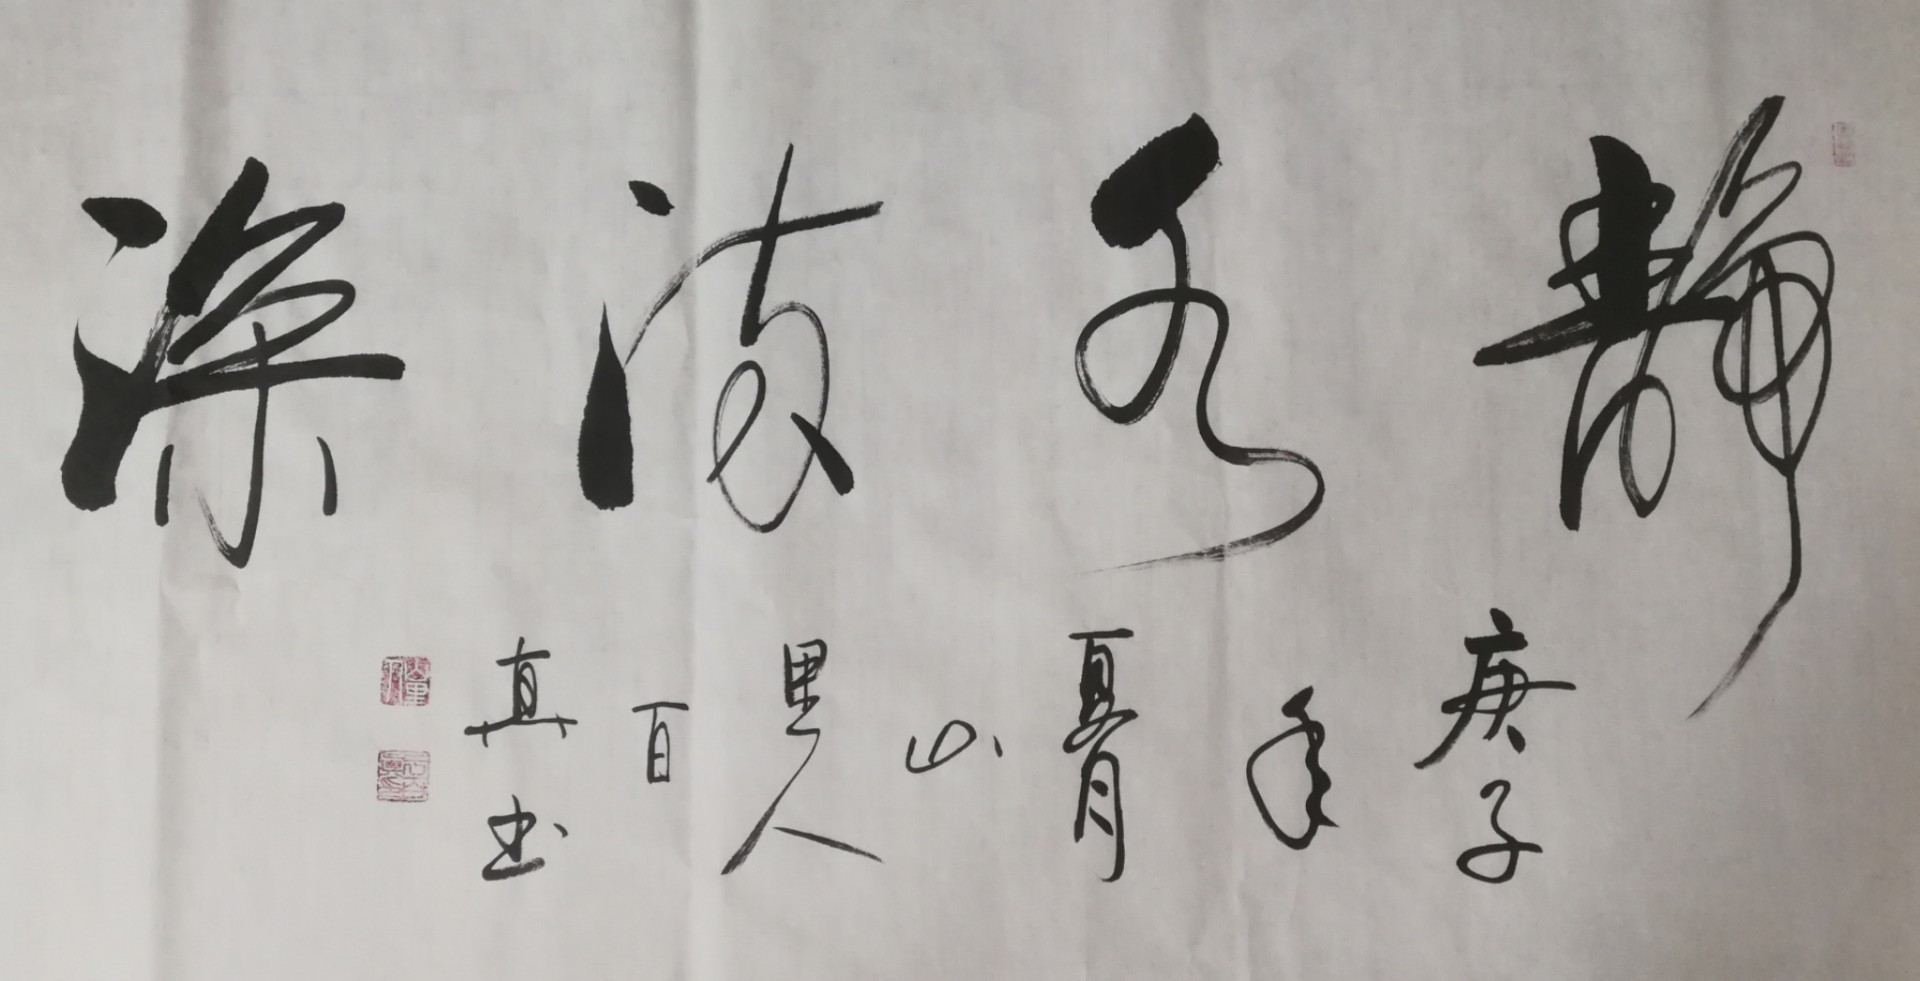 静水流深
庚子年夏月山里人百真书